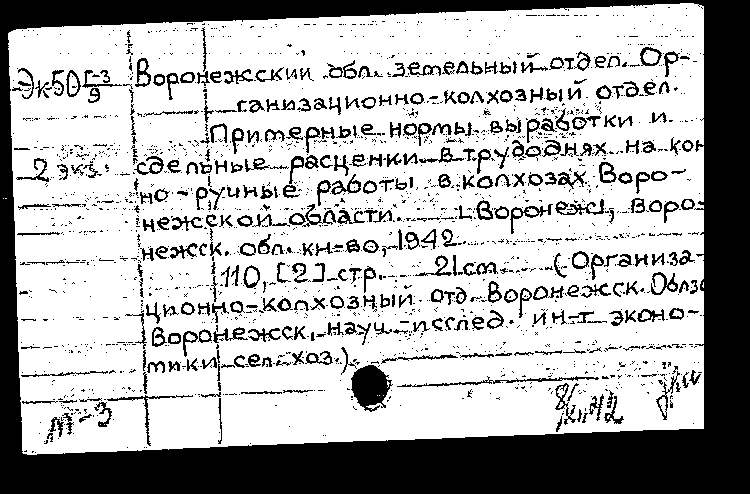 Эк50 Г-3/9 Воронежский обл. земельный отдел. Ор-
ганизационно-колхозный отдел.
Примерные нормы выработки и
2 экз. сдельные расценки в трудоднях на кон
но-ручные работы в колхозах Воро-
нежской области. [Воронеж], Воро-
нежск. обл. кн-во, 1942
110, [2] стр. 21 см. (Организа-
ционно-колхозный отд. Воронежск. Облзо
Воронежск. науч.-исслед. ин-т эконо-
мики сел. хоз.).
М-3